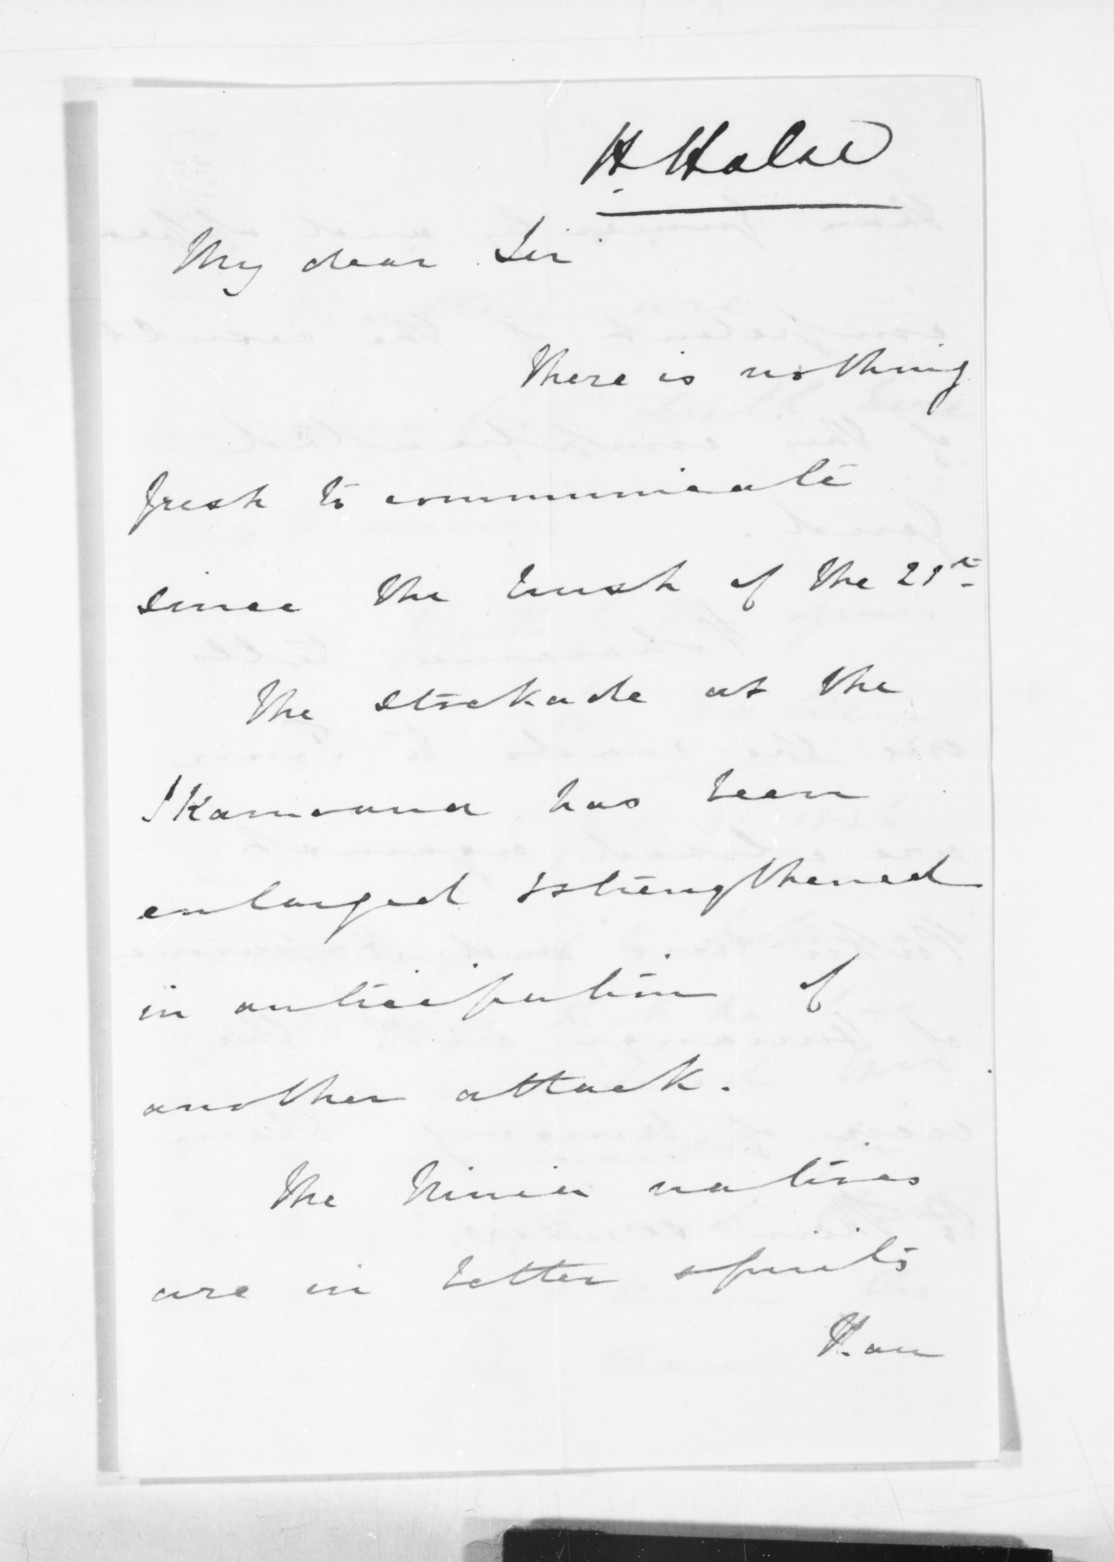 H. Halse
My dear Sir
There is nothing
fresh to communicate
since the brush of the 21st
The stockade at the
Ikamoana has been
enlarged & strengthened
in anticipation of
another attack.
The Ninia natives
are in better spirits
than